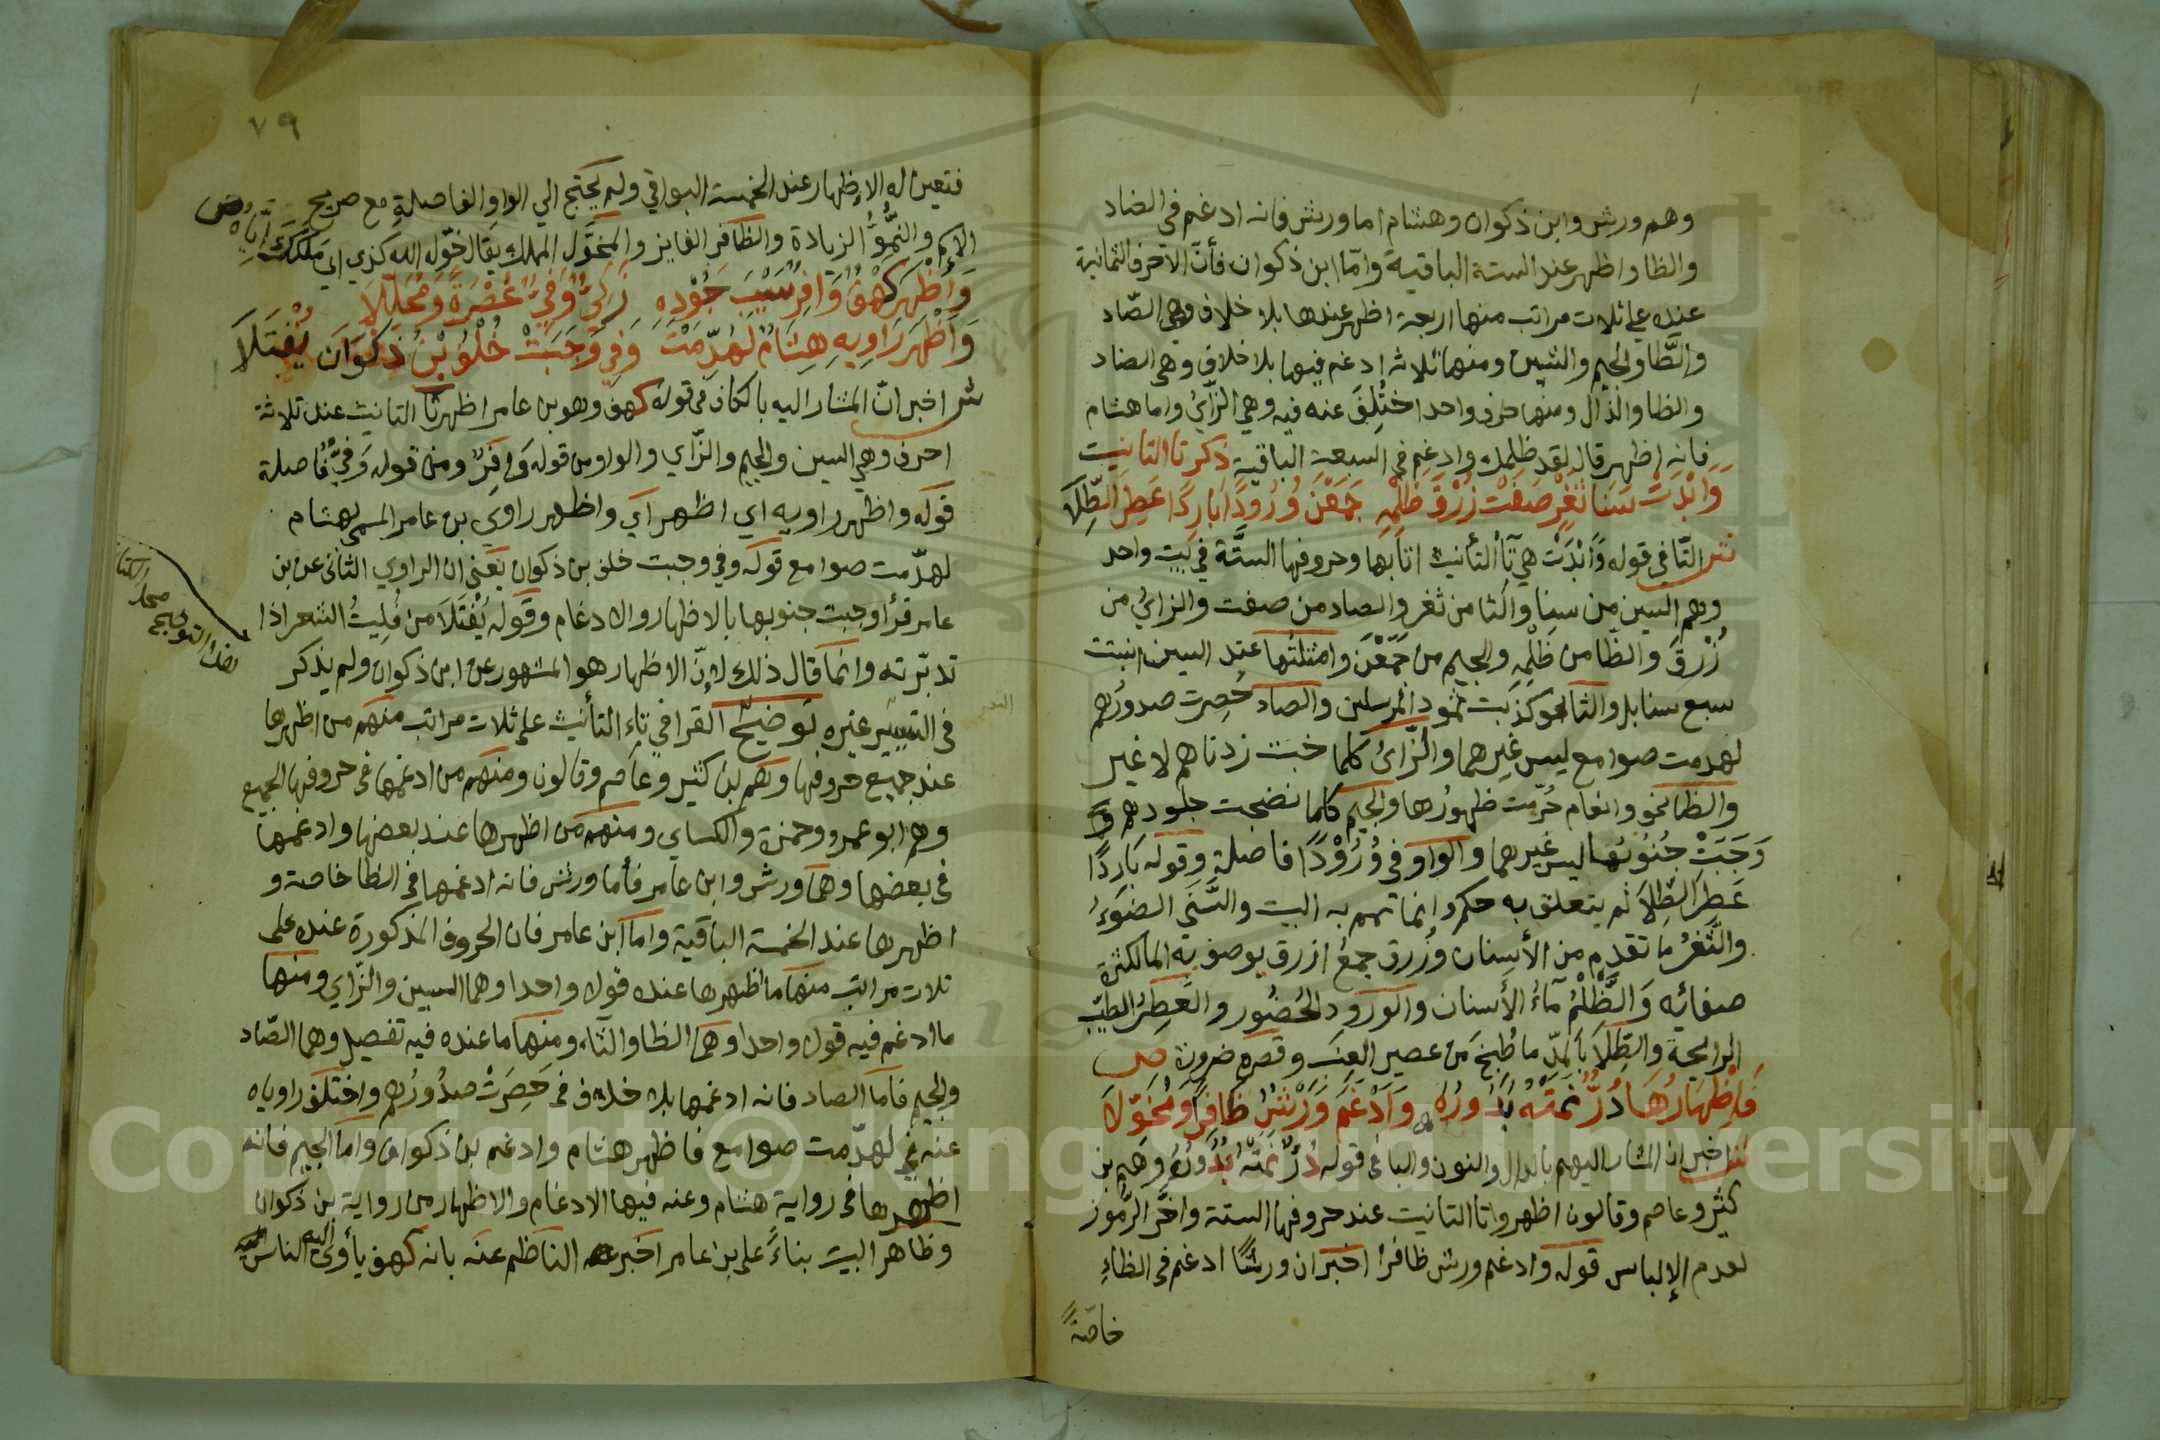 وهم ورش وابن ذكوان وهشام اما ورش فانه ادغم في الضاد
والظا واظهر عند الستة الباقية وامّا ابن ذكوان فأنّ الاحرف الثمانية
عنده على ثلاث مراتب منها اربعة اظهر عندها بلا خلاف وهي الصّاد
والسين والجيم والشين ومنها ثلاثة ادغم فيها بلا خلاف وهي الضاد
والظا والذّال ومنها حرف واحد اختُلِفَ عنه فيه وهي الزّائ واما هشام
فانه اظهر قال لقد ظلمك وادغم في السبعة الباقية ذكر تا التانيث
وَاَبْدَتْ سَنَا ثَغْرٍ صَفَتْ زُرْقُ ظَلْمِهِ جَمَعْنَ وُرُودًا بَارِدًا عَطِرَ الطِّلَا
ش التّا في قوله وَاَبْدَتْ هي تآ التأنيث اتا بها وحروفها الستَّة في بيت واحد
وهم السين من سنا والثا من ثغر والصاد من صفت والزائ من
زُرْقُ والظّا من ظَلْمِهِ والجيم من جَمَعْنَ وامثلتُها عند السين انبتت
سبع سنابل والثا نحو كذبت ثمود المرسلين والصاد حُصِرت صدورهم
لهدمت صوامع ليس غيرهما والزّائ كلما خبت زدناهم لا غير
والظا نحو وانعام حُرّمت ظهورُها والجيم كلما نضجت جلودهم و
وَجَبَتْ جُنُوبُهَا ليس غيرهما والواو في وُرُوْدًا فاصلة وقوله بَارِدًا
عَطِرَ الطِّلَا لم يتعلق به حكم وانما تمم به البيت والسَّنَى الضوءُ
والثَّغْرُ ما تقدم من الأسنان وزُرق جمعُ ازرق يوصف به الما لكثرة
صفائه وَالظَّلْمُ مآءُ الأسنان والورود الحُضُور والعَطِرُ الطيّب
الرايحة والطِّلَا بالمدّ ما طُبخَ من عصير العنب وقصره ضرورة ص
فَاِظْهَارُهَا دُرٌّ نَمَتْهُ بُدُورُهُ وَاَدْغَمَ وَرْشٌ ظَافِرًا وَمُخَوَّلَا
ش اخبر ان المشار اليهم بالدال والنون والبا في قوله دُرٌّ نَمَتْهُ بُدُورُهُ وهم بن
كثير وعاصم وقالون اظهروا تا التانيث عند حروفها الستة واخَّر الرّموز
لعدم الإلباس قوله وادغم ورش ظافرا اخبر ان ورشًا ادغم في الظاءِ
خاصّةً
٧٩
فتعين له الإظهار عند الخمسة البواقي ولم يحتج الي الواو الفاصلة مع صريح
الاسم والنُّمُوُّ الزيادة والظافر الفايز والمخوَّل المملك يقال خوّله الله كذي اي ملّكه اِيّاهُ ص
وَاَظْهَرَ كَهْفٌ وَافِرٌ سَيْبُ جُوْدِهِ زَكِيٌّ وَفِيٌّ عُصْرَةً وَمُحَلَّلَا
وَاَظْهَرَ رَاوِيهِ هِشَامٌ لَهُدِّمَتْ وَفِي وَجَبَتْ خُلْفُ بْنِ ذَكْوَانَ يُفْتَلَا
ش اخبر انّ المشار اليه بالكاف في قوله كهف وهو بن عامر اظهر تآ التانيث عند ثلاثة
احرف وهي السين والجيم والزّاي والواو من قوله وَافِرٌ ومن قوله وَفِيٌّ فاصلة
قوله واظهر راويه اي اظهر اي واظهر راوي بن عامر المسمى بهشام
لهدّمت صوامع قوله وفي وجبت خلف بن ذكوان يعني ان الراوي الثاني عن بن
عامر قرأ وجبت جنوبها بالاظهار والادغام وقوله يُفْتَلَا من فُلِيتُ الشعر اذا
تدبّرته وانما قال ذلك لإنّ الاظهار هو المشهور عن ابن ذكوان ولم يذكر
في التيسير غيره توضيح القرا في تاءِ التأنيث على ثلاث مراتب منهم من اظهرها
عند جميع حروفها وهم بن كثير وعاصم وقالون ومنهم من ادغمها في حروفها الجميع
وهم ابو عمرو وحمزة والكساي ومنهم من اظهرها عند بعضها وادغمها
في بعضها وهما ورش وابن عامر فأما ورش فانه ادغمها في الظا خاصة و
اظهرها عند الخمسة الباقية واما ابن عامر فان الحروف المذكورة عنده على
ثلاث مراتب منها ما اظهرها عنده قولا واحدا وهما السين والزّاي ومنها
ما ادغم فيه قولا واحدا وهما الظا والثآء ومنها ما عنده فيه تفصيل وهما الصّاد
والجيم فأما الصاد فانه ادغمها بلا خلاف في حَصِرَتْ صدُورُهم واختلف راوياه
عنه في لهدّمت صوامع فاظهر هشام وادغم بن ذكوان واما الجيم فانه
اظهرها في رواية هشام وعنه فيها الادغام والاظهار من رواية بن ذكوان
وظاهر البيت بناءً على بن عامر اخبر عنه الناظم عنه بانه كهف يأوى اليه الناس
Copyright © King Saud University